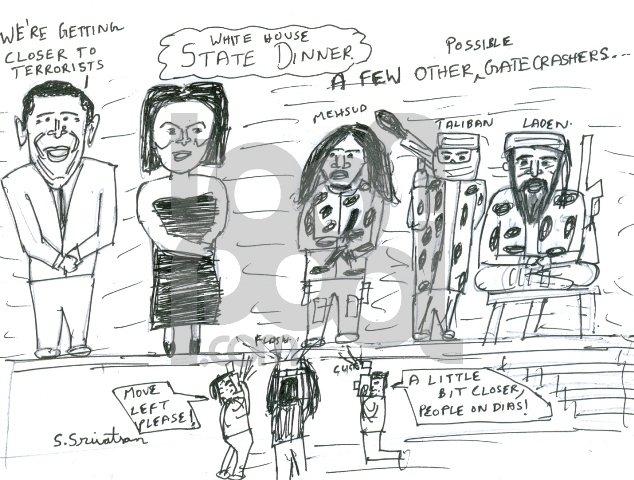 WE'RE GETTING
CLOSER TO
TERRORISTS
WHITE HOUSE
STATE DINNER
POSSIBLE
A FEW OTHER, GATECRASHERS...
MEHSUD
TALIBAN
LADEN.
FLASH
CLICK
MOVE
LEFT
PLEASE!
A LITTLE
BIT CLOSER,
PEOPLE ON DIAS!
S. Srivatsan
toon
pool
.com